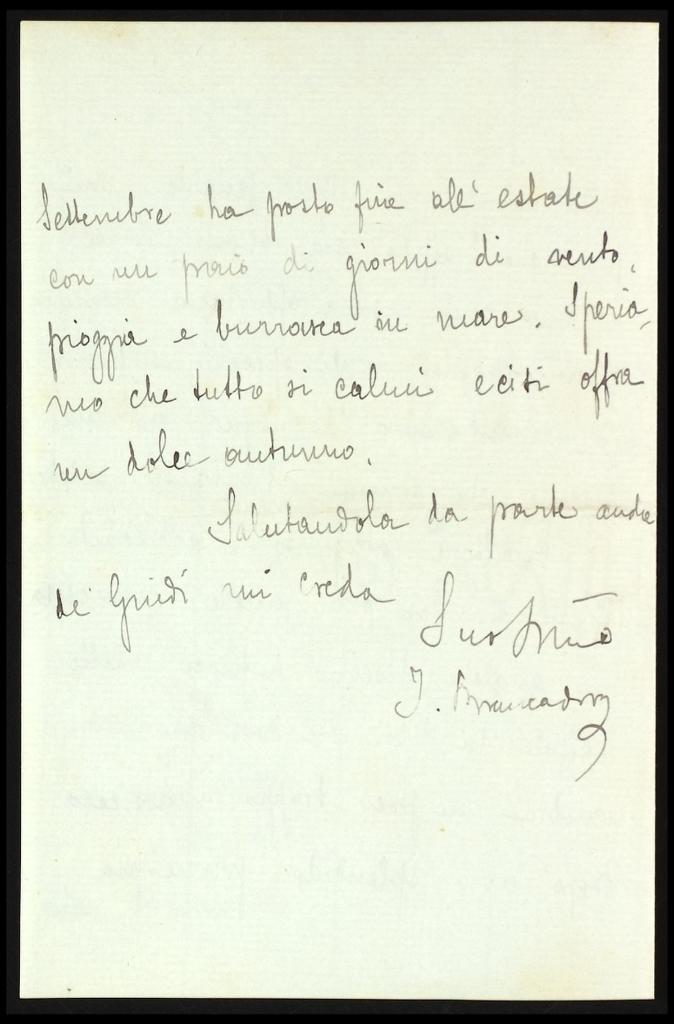 Settembre ha posto fine all' estate
con un paio di giorni di vento,
pioggia e burrasca in mare. Speria-
mo che tutto si calmi e ci si offra
un dolce autunno.
Salutandola da parte anche
de Guidi mi creda
Suo
J. Brancadoro